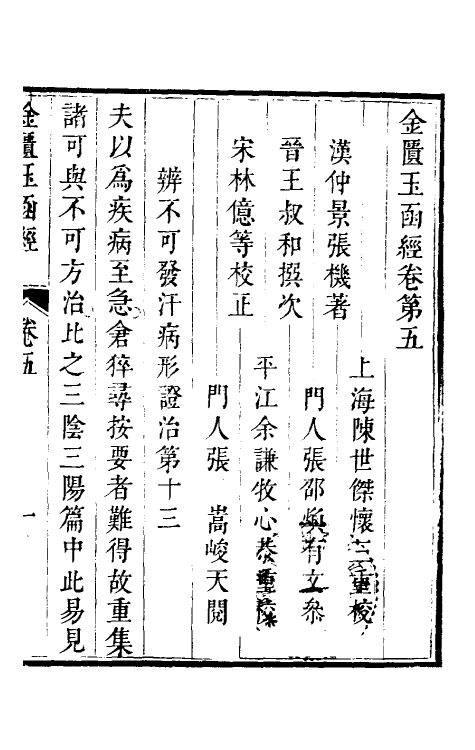 金匱玉函經卷第五
漢仲景張機著
上海陳世傑懷三重校
晉王叔和撰次
門人張邵有文叅
宋林億等校正
平江余謙牧心叅重校
門人張 嵩峻天閱
辨不可發汗病形證治第十三
夫以爲疾病至急倉猝尋按要者難得故重集
諸可與不可方治比之三陰三陽篇中此易見
金匱玉函經 卷五 一